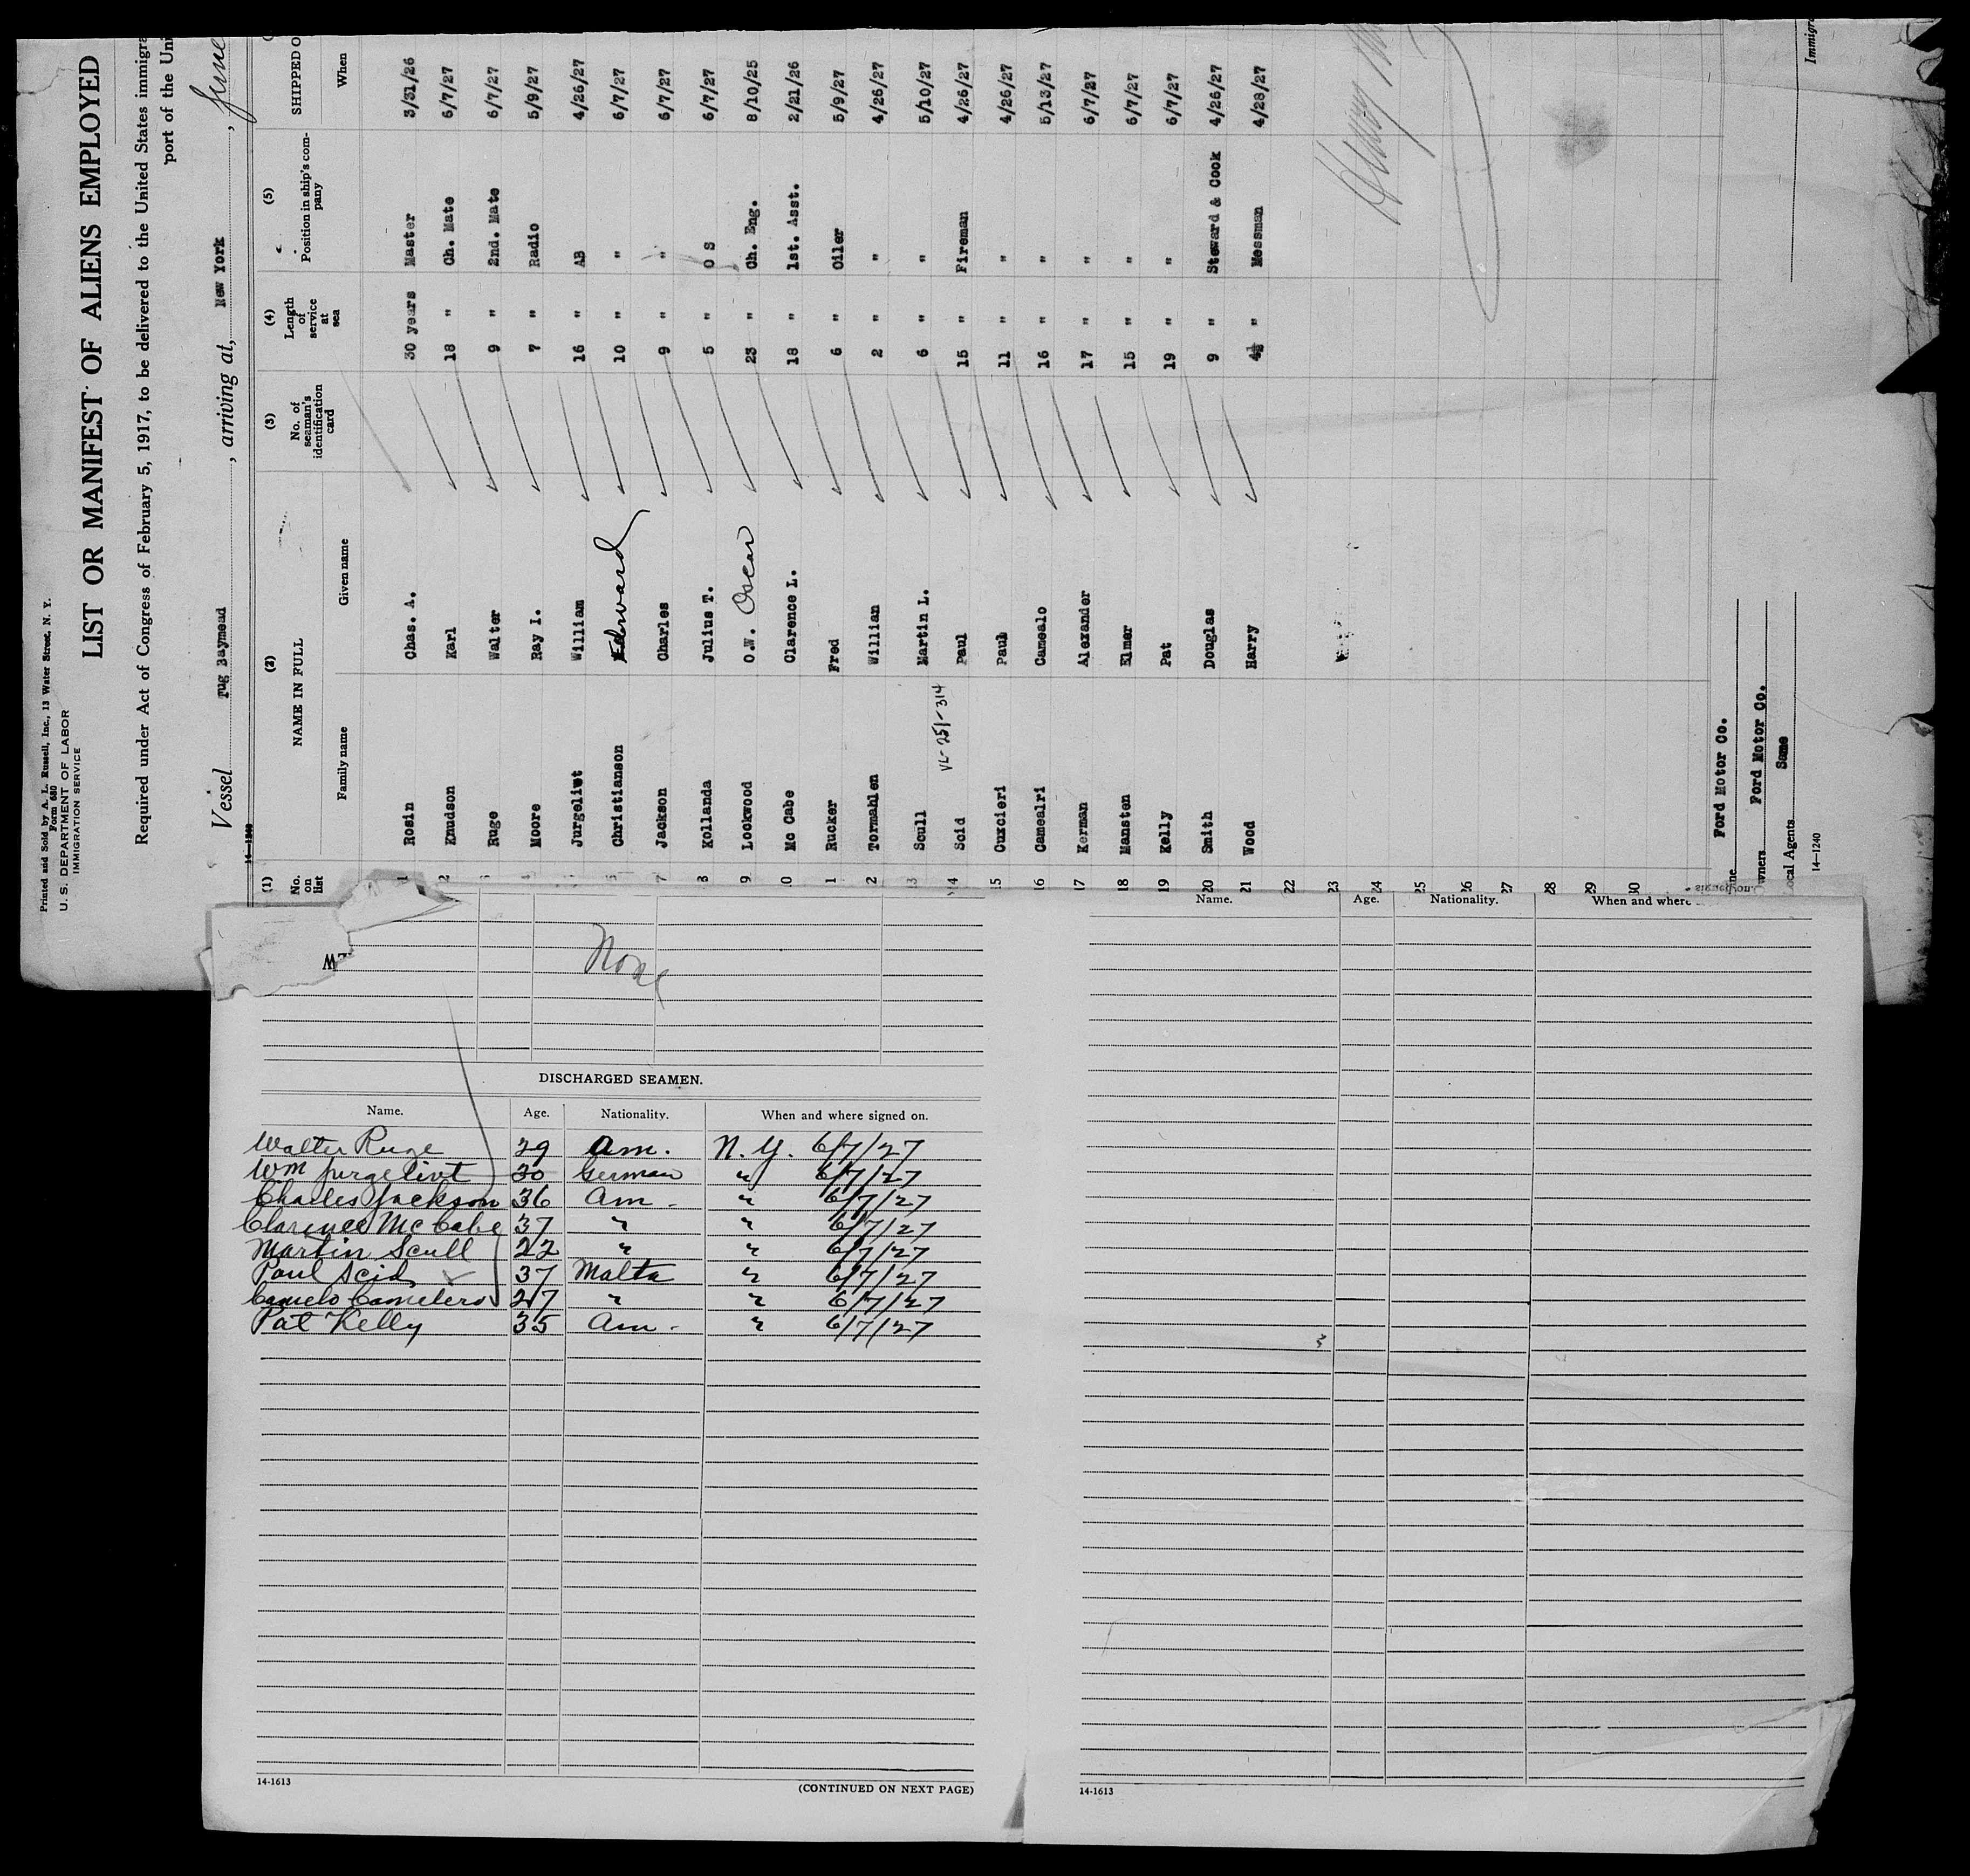 Printed and Sold by A. L. Russell, Inc., 13 Water Street, N. Y.
Form 680
U. S. DEPARTMENT OF LABOR
IMMIGRATION SERVICE
LIST OR MANIFEST OF ALIENS EMPLOYED
Required under Act of Congress of February 5, 1917, to be delivered to the United States immigra
port of the Uni
Vessel Tug Baymead, arriving at, New York, June
14-1240
(1) (2) (3) (4) (5)
No. on list NAME IN FULL No. of seaman's identification card Length of service at sea Position in ship's company SHIPPED O
Family name Given name When
1 Rosin Chas. A. 30 years Master 3/31/26
2 Knudson Karl 18 " Ch. Mate 6/7/27
3 Ruge Walter 9 " 2nd. Mate 6/7/27
4 Moore Ray I. 7 " Radio 5/9/27
Jurgelivt William 16 " AB 4/26/27
Christianson Edward 10 " " 6/7/27
7 Jackson Charles 9 " " 6/7/27
8 Kollanda Julius T. 5 " O S 6/7/27
9 Lockwood O.W. Oscar 23 " Ch. Eng. 8/10/25
0 Mc Cabe Clarence L. 18 " 1st. Asst. 2/21/26
1 Rucker Fred 6 " Oiler 5/9/27
2 Tormahlen Willian 2 " " 4/26/27
13 Scull Martin L. 6 " " 5/10/27
VL-251-314
14 Scid Paul 15 " Fireman 4/26/27
15 Cuxcieri Paul 11 " " 4/26/27
16 Camealri Camealo 16 " " 5/13/27
17 Kerman Alexander 17 " " 6/7/27
18 Mansten Elmer 15 " " 6/7/27
19 Kelly Pat 19 " " 6/7/27
20 Smith Douglas 9 " Steward & Cook 4/26/27
21 Wood Harry 4½ " Messman 4/28/27
22
23
24
25
26
27
28
29
30
ne Ford Motor Co.
wners Ford Motor Co.
ocal Agents Same
14-1240
Immigra
None
DISCHARGED SEAMEN.
Name. Age. Nationality. When and where signed on.
Walter Ruge 29 Am. N. Y. 6/7/27
Wm Jurgelivt 30 German " 6/7/27
Charles Jackson 36 Am. " 6/7/27
Clarence McCabe 37 " " 6/7/27
Martin Scull 22 " " 6/7/27
Paul Scid 37 Malta " 6/7/27
Camelo Camelero 27 " " 6/7/27
Pat Kelly 35 Am. " 6/7/27
14-1613
(CONTINUED ON NEXT PAGE)
Name. Age. Nationality. When and where
14-1613